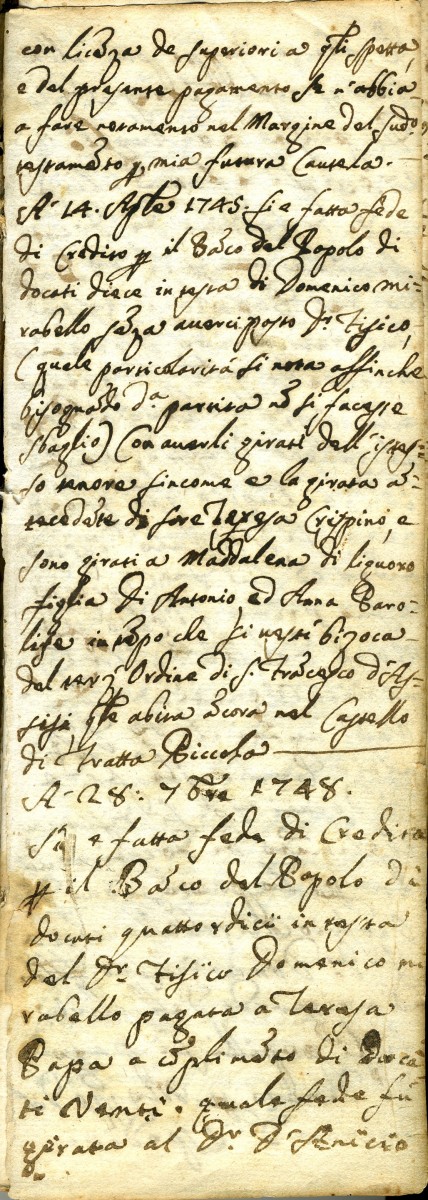 con licenza de superiori a q.li spetta,
e del presente pagamento se n'abbia
a fare notamento nel Margine del sud.o
testamēto p mia futura Cautela.
A 14. Ap̄le 1745. si e fatta fede
di Credito p il Bāco del Popolo di
docati diece in testa di Domenico mi=
rabello sēza averci posto D.r Fisico,
(quale particolarità si nota affinche
bisognādo d.a partita nō si facesse
sbaglio) Con averli girati dell'istes=
so tenore sincome e la girata ā=
tecedēte di sore Teresa Crispino, e
sono girati a Maddalena di liguoro
figlia di Antonio, ed Anna Baro=
lise in tēpo che si vestì bizoca
del terz' Ordine di S. Frācesco d'As=
sisi, q̄le abita ācora nel Castello
di Fratta Piccola
A 28: 7bre 1748.
si e fatta fede di Credito
p il Bāco del Popolo di
docati quattordicii in testa
del Dr. Fisico Domenico mi
rabello pagata a Teresa
Papa a cōplimēto di Doca
ti Venti. quale fede fù
girata al Dr. D.